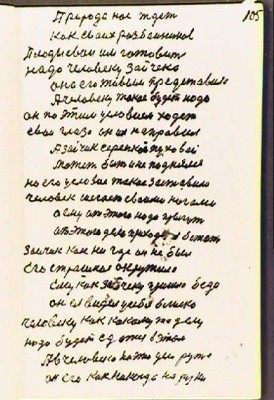 105
Природа нас ждет
как своих разбойников
Плоды свои им готовит
надо человеку зайчека
она его живым представила
А человеку такое будет надо
он по этим условиям ходит
свои глаза он им направил
А зайчик серенький пуховой
Может быть и не поднялся
но его условие такое заставило
человек шагает своими ногами
а ему от этого надо прыгут
от этого дела бежат
Зайчик как ни где он не был
Его страшное окружило
Ему как зайчику пришло беда
он ее видел у себя близко
человеку как какому то делу
надо будет с этого взять
А в человека на то две руки
он его как никогда на руки